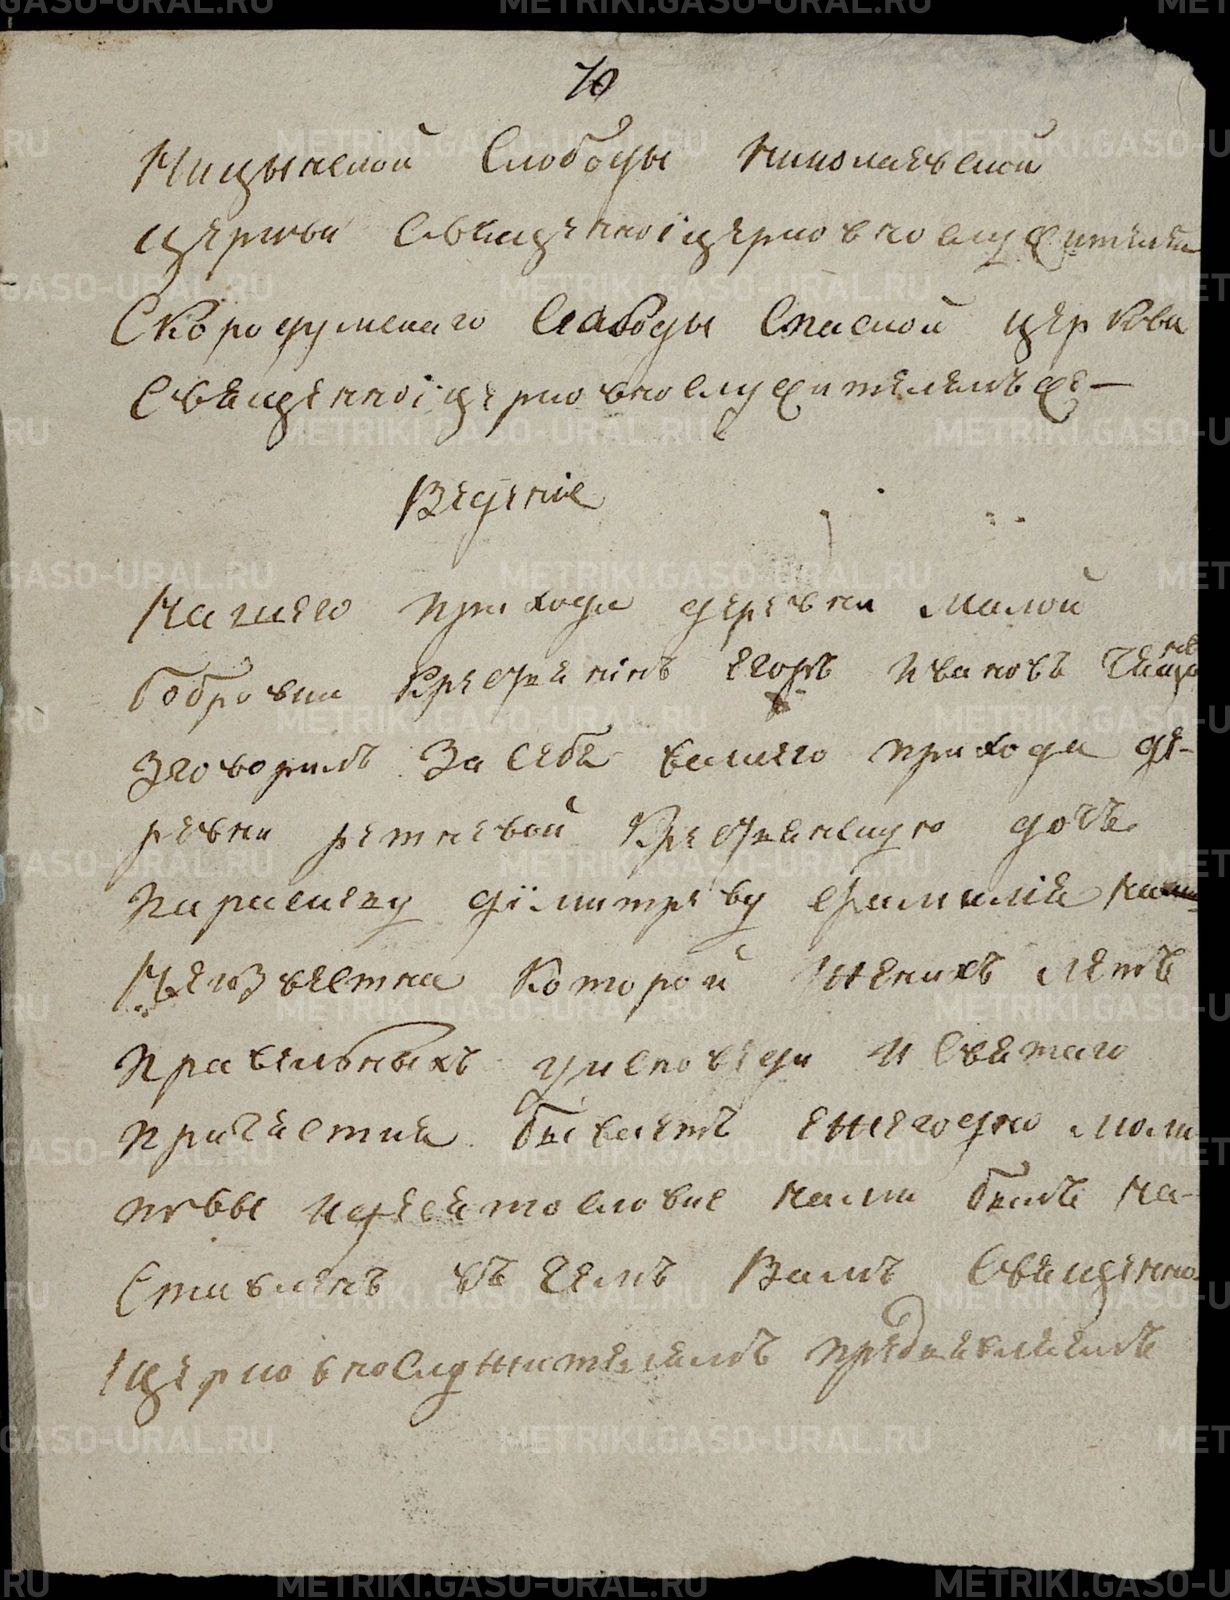 70
Ницынской Слободы Николаевской
церкви Священноiцерковнослужители
Скородумскаго Слабоды Спаской церкви
Священноiцерковнослужителямъ же—
Ведение
Нашего прихода деревни Малой
бобровки Крестьянiнъ Егоръ Ивановъ
зговорилъ За себя вашего прихода де-
ревни ретневой Крестьянскую дочь
Параскеву дiмитреву фамилiя
Неизвестна Которой жених лѣтъ
правильныхъ уисповеди и Святаго
причастия бываетъ ежегодно моли
твы идесятословие нами былъ на-
ставленъ въ чемъ Вамъ Священно
iцерковнослужителямъ предъявляемъ
METRIKI.GASO-URAL.RU